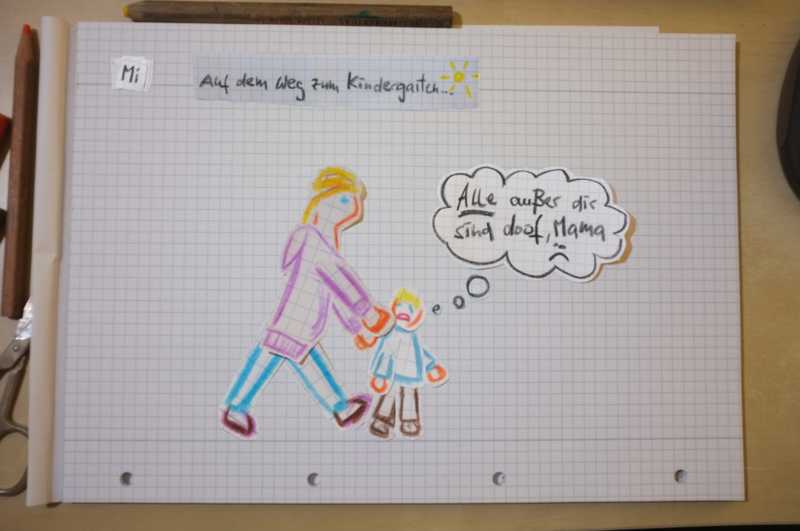 Mi
Auf dem Weg zum Kindergarten...
Alle außer dir
sind doof, Mama